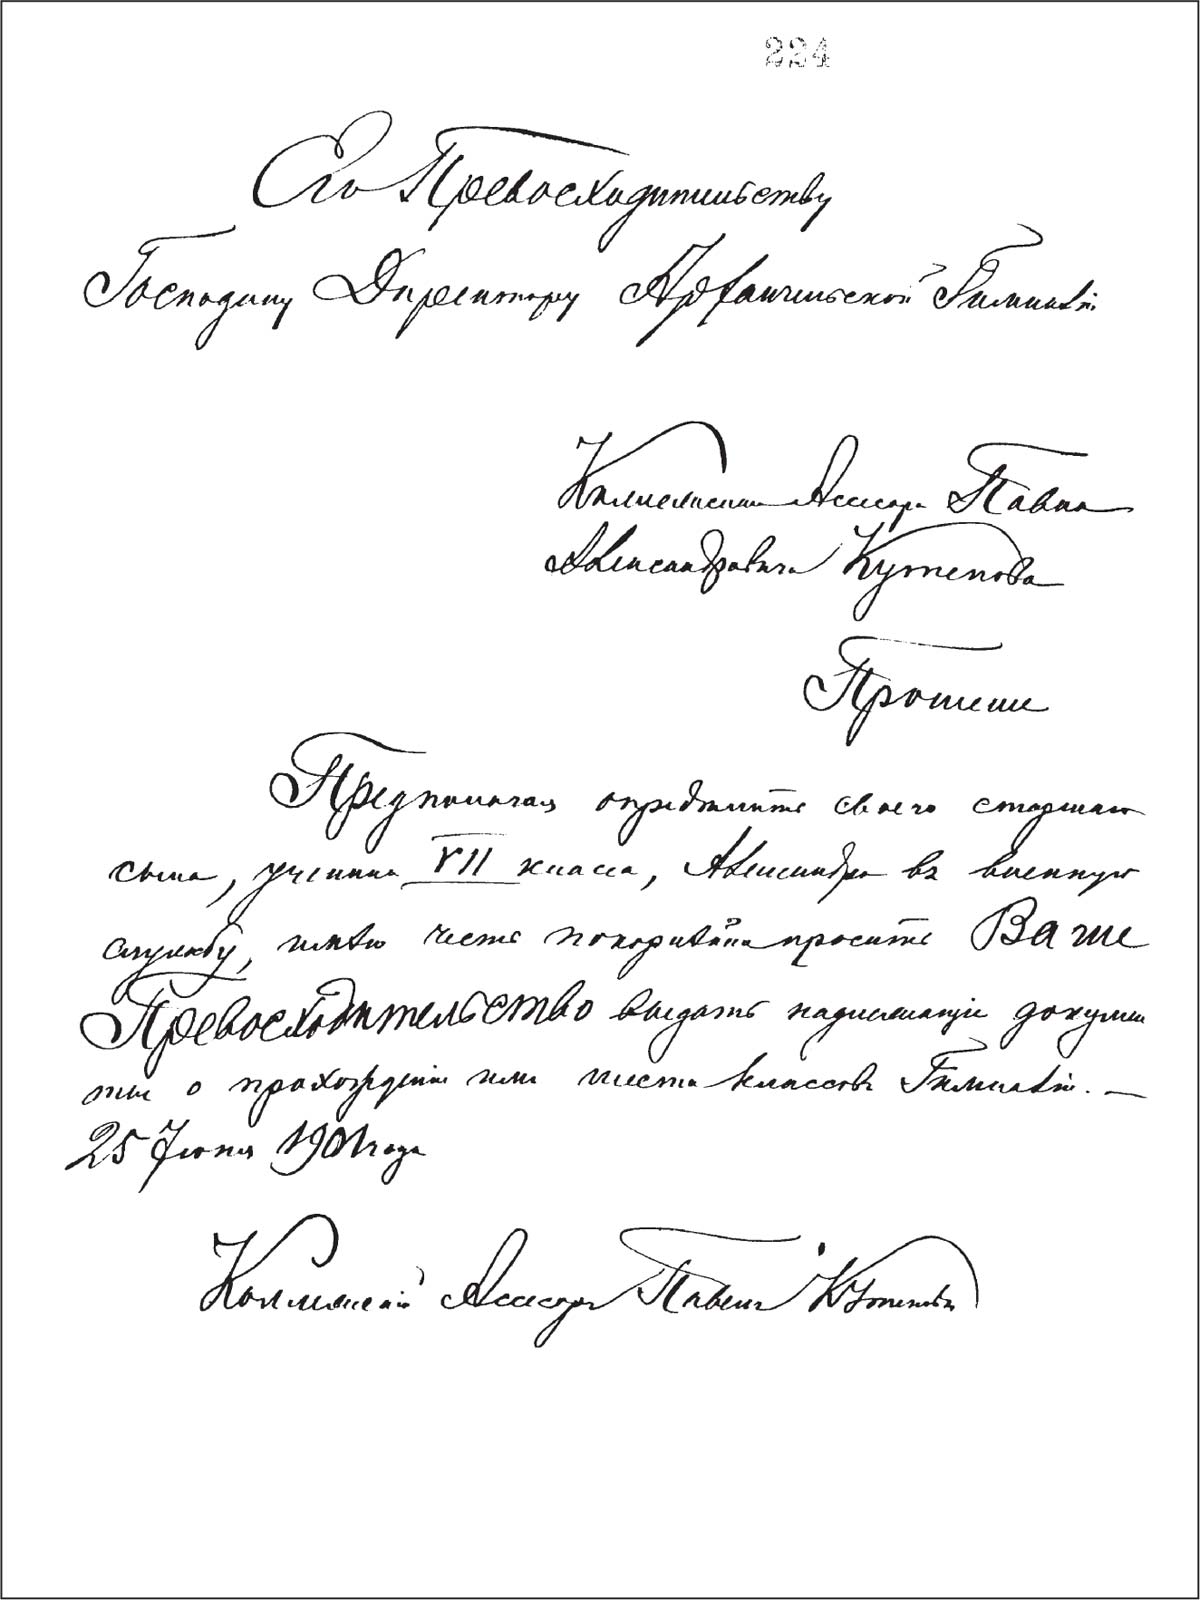 224
Его Превосходительству
Господину Директору Архангельской Гимназiи
Коллежскаго Асессора Павла
Александровича Кутепова
Прошенiе
Предполагая опредѣлить своего старшаго
сына, ученика VII класса, Александра въ военную
службу, имѣю честь покорнѣйше просить Ваше
Превосходительство выдать надлежащiе докумен
ты о прохожденiи имъ шести классовъ Гимназiи. —
25 Iюня 1901 года
Коллежскiй Асессоръ Павелъ Кутеповъ